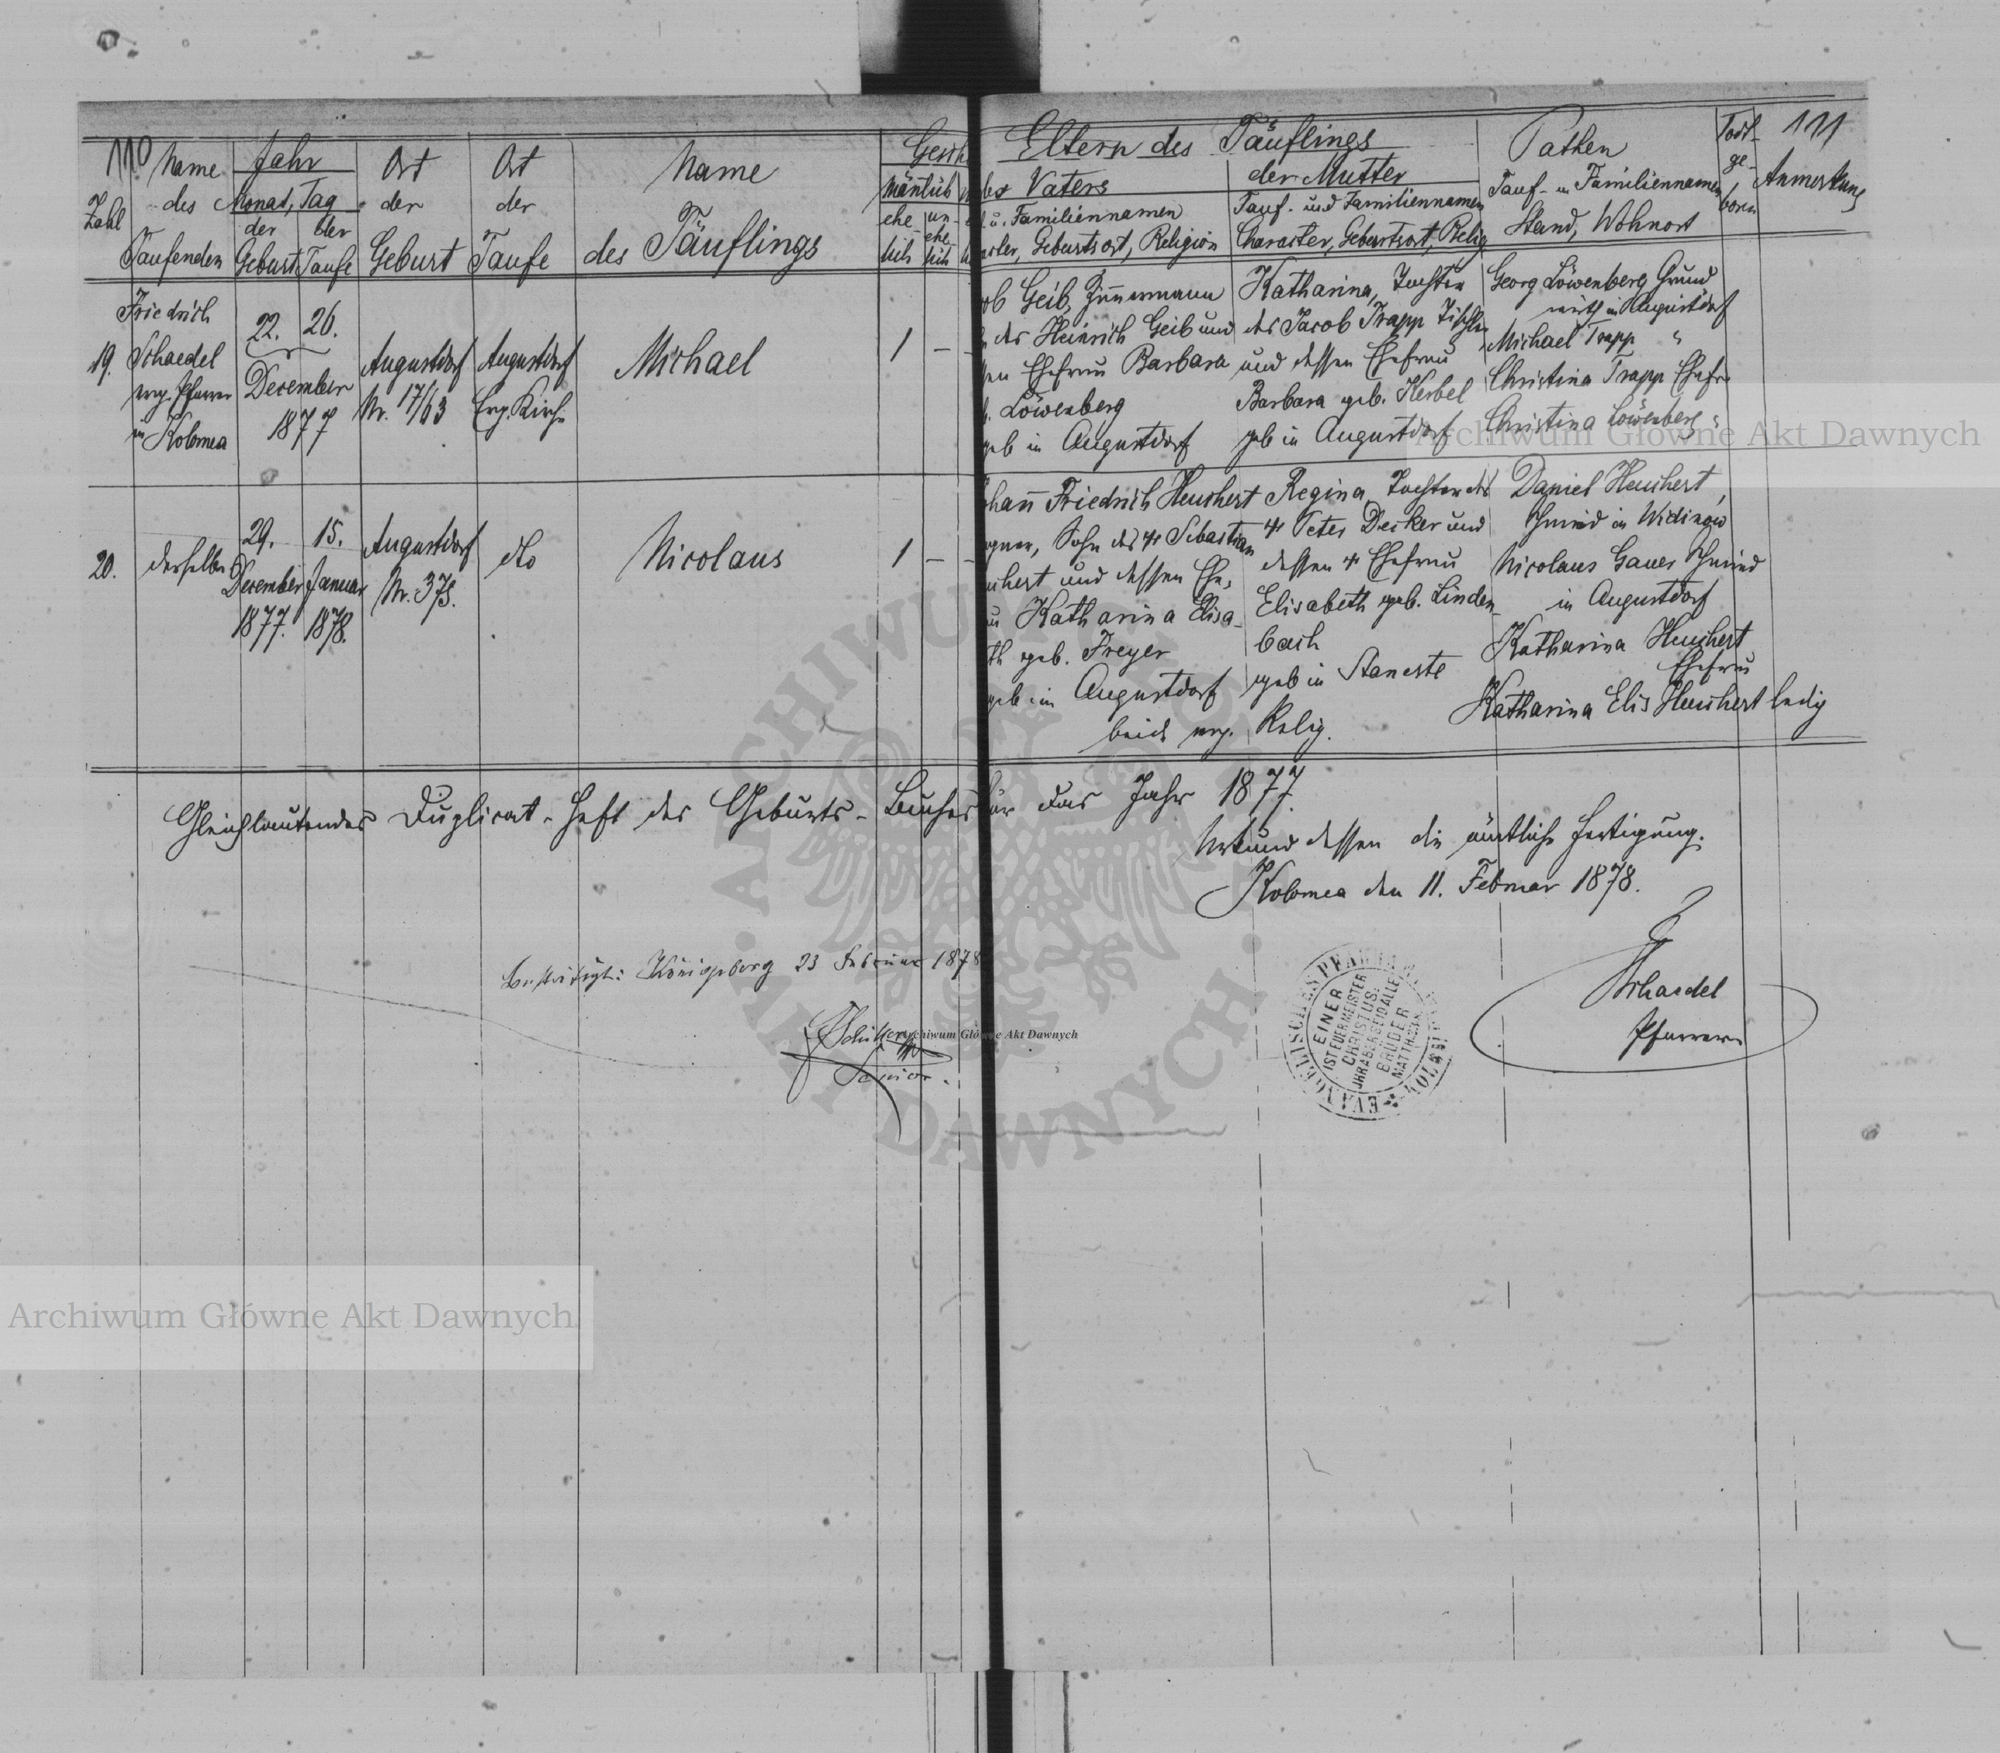 110
Zahl
Name
des
Taufenden
Jahr
Monat, Tag
der der
Geburt Taufe
Ort
der
Geburt
Ort
der
Taufe
Name
des Täuflings
Gesch
Mänlich
ehe-
lich
un-
ehe
lich
Eltern des Täuflings
des Vaters
u. Familiennamen
Geburtsort, Religion
der Mutter
Tauf- und Familiennamen
Charakter, Geburtsort, Relig
Pathen
Tauf- u Familiennamen
Stand, Wohnort
Todt-
ge-
boren
111
Anmerkung
19.
Friedrich
Schaedel
evg. Pfarrer
in Kolomea
22. 26.
December
1877
Augustdorf
Nr. 17/63
Augustdorf
Evg. Kirche
Michael
1 — —
ob Geib, Zimmermann
des Heinrich Geib und
en Ehefrau Barbara
b. Löwenberg
geb in Augustdorf
Katharina, Tochter
des Jacob Trapp Tischler
und dessen Ehefrau
Barbara geb. Kerbel
geb in Augustdorf
Georg Löwenberg Grund
wirth in Augustdorf
Michael Trapp "
Christina Trapp Ehefr
Christina Löwenberg "
20.
derselbe
29.
December
1877.
15.
Januar
1878.
Augustdorf
Nr. 375.
dto
Nicolaus
1 — —
hann Friedrich Heuchert
gner, Sohn des Sebastian
chert und dessen Ehe,
au Katharina Elisa-
th geb. Freyer
geb in Augustdorf
Regina, Tochter des
Peter Decker und
dessen Ehefrau
Elisabeth geb. Linden-
bach
geb in Staneste
beide evg. Relig.
Daniel Heuchert,
Schmied in Widinow
Nicolaus Gauer Schmied
in Augustdorf
Katharina Heuchert
Ehefrau
Katharina Elis Heuchert ledig
Gleichlautendes Duplicat-Heft des Geburts-Buches für das Jahr 1877.
Urkund dessen die ämtliche Fertigung.
Kolomea den 11. Februar 1878.
Schaedel
Pfarrer
Bestätigt: Königsberg 23 Februar 1878
Senior.
EVANGELISCHES PFARRAMT
EINER
IST EUER MEISTER
CHRISTUS.
IHR ABER SEID ALLE
BRÜDER
MATTH.23.8.
Archiwum Główne Akt Dawnych
Archiwum Główne Akt Dawnych
Archiwum Główne Akt Dawnych
ARCHIWUM GŁÓWNE AKT DAWNYCH